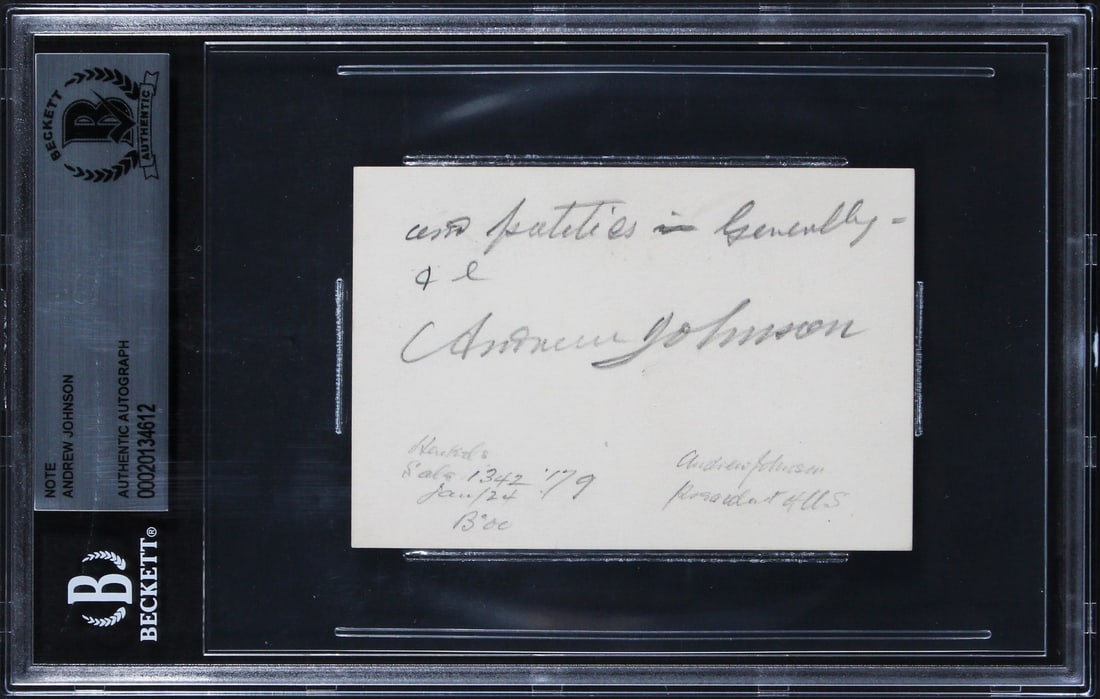 BECKETT
B
AUTHENTIC
NOTE
ANDREW JOHNSON
AUTHENTIC AUTOGRAPH
00020134612
B
BECKETT®
and politics in Generally =
& c
Andrew Johnson
Henkels
Sale 1342 179
Jan/24
Andrew Johnson
President of US